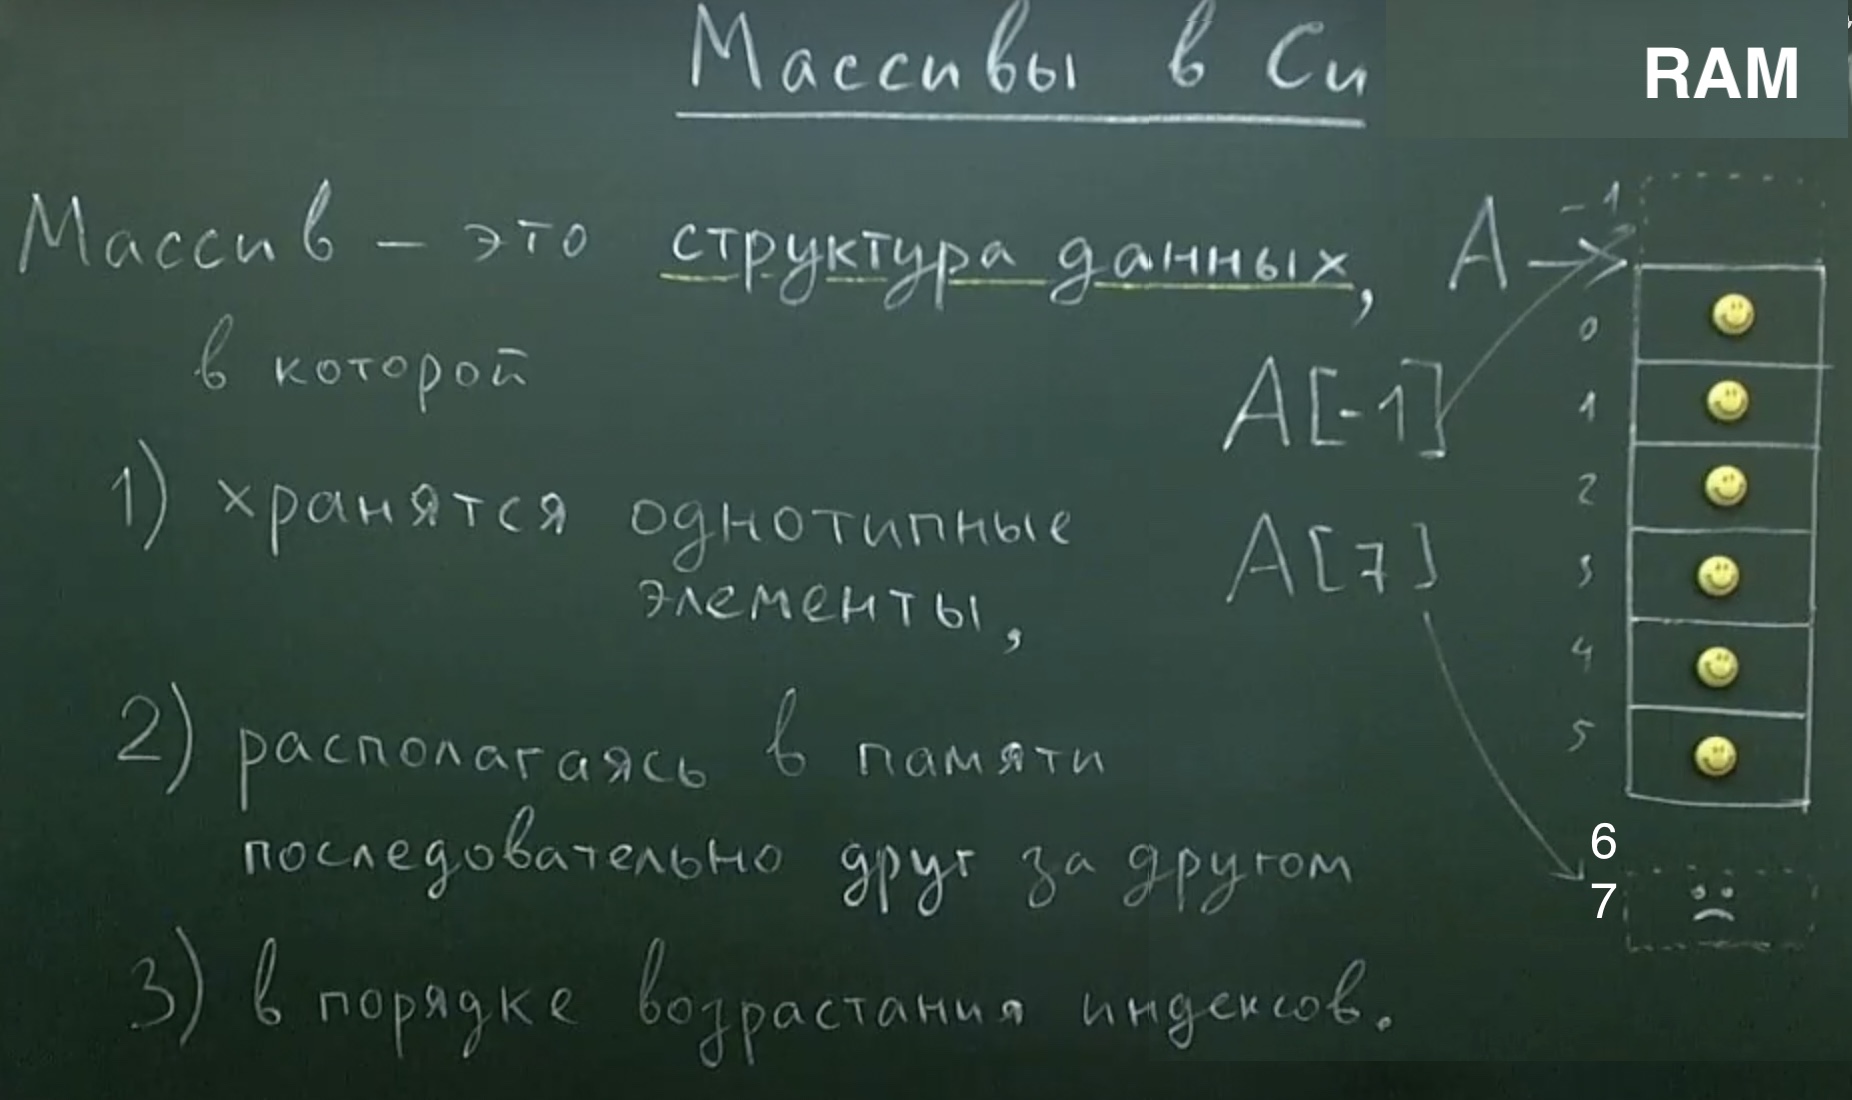 Массивы в Си
RAM
Массив – это структура данных,
в которой
1) хранятся однотипные
элементы,
2) располагаясь в памяти
последовательно друг за другом
3) в порядке возрастания индексов.
A
A[-1]
A[7]
-1
0
1
2
3
4
5
6
7